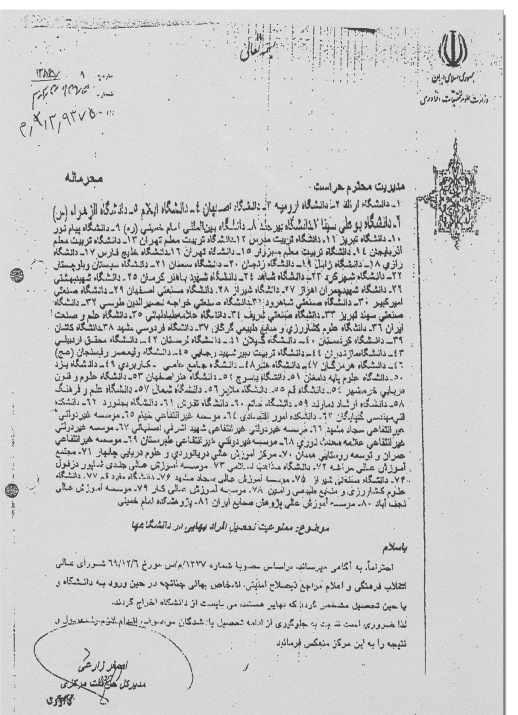 بسمه تعالی
جمهوری اسلامی ایران
وزارت علوم، تحقیقات و فناوری
محرمانه
مدیریت محترم حراست
۱- دانشگاه اراک ۲- دانشگاه ارومیه ۳- دانشگاه اصفهان ۴- دانشگاه ایلام ۵- دانشگاه الزهراء (س)
۶- دانشگاه بوعلی سینا ۷- دانشگاه بیرجند ۸- دانشگاه بین‌المللی امام خمینی (ره) ۹- دانشگاه پیام نور
۱۰- دانشگاه تبریز ۱۱- دانشگاه تربیت مدرس ۱۲- دانشگاه تربیت معلم تهران ۱۳- دانشگاه تربیت معلم
آذربایجان ۱۴- دانشگاه تربیت معلم سبزوار ۱۵- دانشگاه تهران ۱۶- دانشگاه خلیج فارس ۱۷- دانشگاه
رازی ۱۸- دانشگاه زابل ۱۹- دانشگاه زنجان ۲۰- دانشگاه سمنان ۲۱- دانشگاه سیستان وبلوچستان
۲۲- دانشگاه شهرکرد ۲۳- دانشگاه شاهد ۲۴- دانشگاه شهید باهنر کرمان ۲۵- دانشگاه شهیدبهشتی
۲۶- دانشگاه شهیدچمران اهواز ۲۷- دانشگاه شیراز ۲۸- دانشگاه صنعتی اصفهان ۲۹- دانشگاه صنعتی
امیرکبیر ۳۰- دانشگاه صنعتی شاهرود ۳۱- دانشگاه صنعتی خواجه نصیرالدین طوسی ۳۲- دانشگاه
صنعتی سهند تبریز ۳۳- دانشگاه صنعتی شریف ۳۴- دانشگاه علامه‌طباطبائی ۳۵- دانشگاه علم و صنعت
ایران ۳۶- دانشگاه علوم کشاورزی و منابع طبیعی گرگان ۳۷- دانشگاه فردوسی مشهد ۳۸- دانشگاه کاشان
۳۹- دانشگاه کردستان ۴۰- دانشگاه گیلان ۴۱- دانشگاه لرستان ۴۲- دانشگاه محقق اردبیلی
۴۳- دانشگاه مازندران ۴۴- دانشگاه تربیت دبیر شهید رجایی ۴۵- دانشگاه ولیعصر رفسنجان (عج)
۴۶- دانشگاه هرمزگان ۴۷- دانشگاه هنر ۴۸- دانشگاه جامع علمی - کاربردی ۴۹- دانشگاه یزد
۵۰- دانشگاه علوم پایه دامغان ۵۱- دانشگاه یاسوج ۵۲- دانشگاه هنر اصفهان ۵۳- دانشگاه علوم و فنون
دریایی خرمشهر ۵۴- دانشگاه قم ۵۵- دانشگاه ملایر ۵۶- دانشگاه شمال ۵۷- دانشگاه علم و فرهنگ
۵۸- دانشگاه ارشاد دماوند ۵۹- دانشگاه خاتم ۶۰- دانشگاه تفرش ۶۱- دانشگاه بجنورد ۶۲- دانشکده
فنی‌مهندسی گلپایگان ۶۳- دانشکده امور اقتصادی ۶۴- موسسه غیرانتفاعی خیام ۶۵- موسسه غیردولتی
غیرانتفاعی سجاد مشهد ۶۶- موسسه غیردولتی غیرانتفاعی شهید اشرفی اصفهانی ۶۷- موسسه غیردولتی
غیرانتفاعی علامه محدث نوری ۶۸- موسسه غیردولتی غیرانتفاعی طبرستان ۶۹- موسسه غیرانتفاعی
عمران و توسعه روستایی همدان ۷۰- مرکز آموزش عالی دریانوردی و علوم دریایی چابهار ۷۱- مجتمع
آموزش عالی مراغه ۷۲- دانشگاه مذاهب اسلامی ۷۳- موسسه آموزش عالی جندی شاپور دزفول
۷۴- دانشگاه صنعتی شیراز ۷۵- موسسه آموزش عالی سجاد مشهد ۷۶- دانشگاه مفید قم ۷۷- دانشگاه
علوم کشاورزی و منابع طبیعی رامین ۷۸- موسسه آموزش عالی کار ۷۹- موسسه آموزش عالی
نجف آباد ۸۰- موسسه آموزش عالی پژوهش صنایع ایران ۸۱- پژوهشکده امام خمینی
موضوع: ممنوعیت تحصیل افراد بهایی در دانشگاهها
باسلام
احتراماً، به آگاهی میرساند، براساس مصوبه شماره ۱۲۷۷/م/س مورخ ۶۹/۱۲/۶ شورای عالی
انقلاب فرهنگی و اعلام مراجع ذیصلاح امنیتی، اشخاص بهائی چنانچه در حین ورود به دانشگاه و
یا حین تحصیل مشخص گردد که بهایی هستند، می بایست از دانشگاه اخراج گردند.
لذا ضروری است نسبت به جلوگیری از ادامه تحصیل یاد شدگان اقدام لازم و
نتیجه را به این مرکز منعکس فرمائید
اصغر زارعی
مدیرکل حراست مرکزی